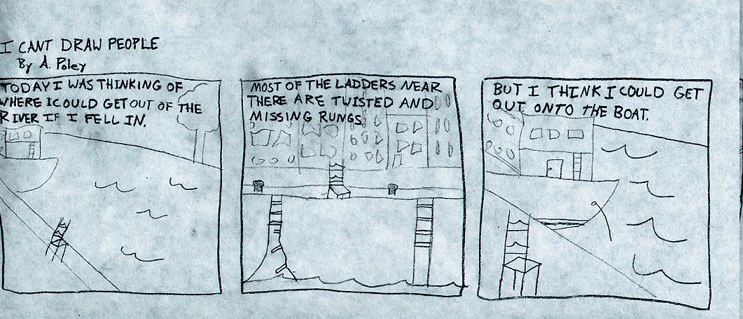 I CANT DRAW PEOPLE
By A. Poley
TODAY I WAS THINKING OF
WHERE I COULD GET OUT OF THE
RIVER IF I FELL IN.
MOST OF THE LADDERS NEAR
THERE ARE TWISTED AND
MISSING RUNGS
BUT I THINK I COULD GET
OUT ONTO THE BOAT.